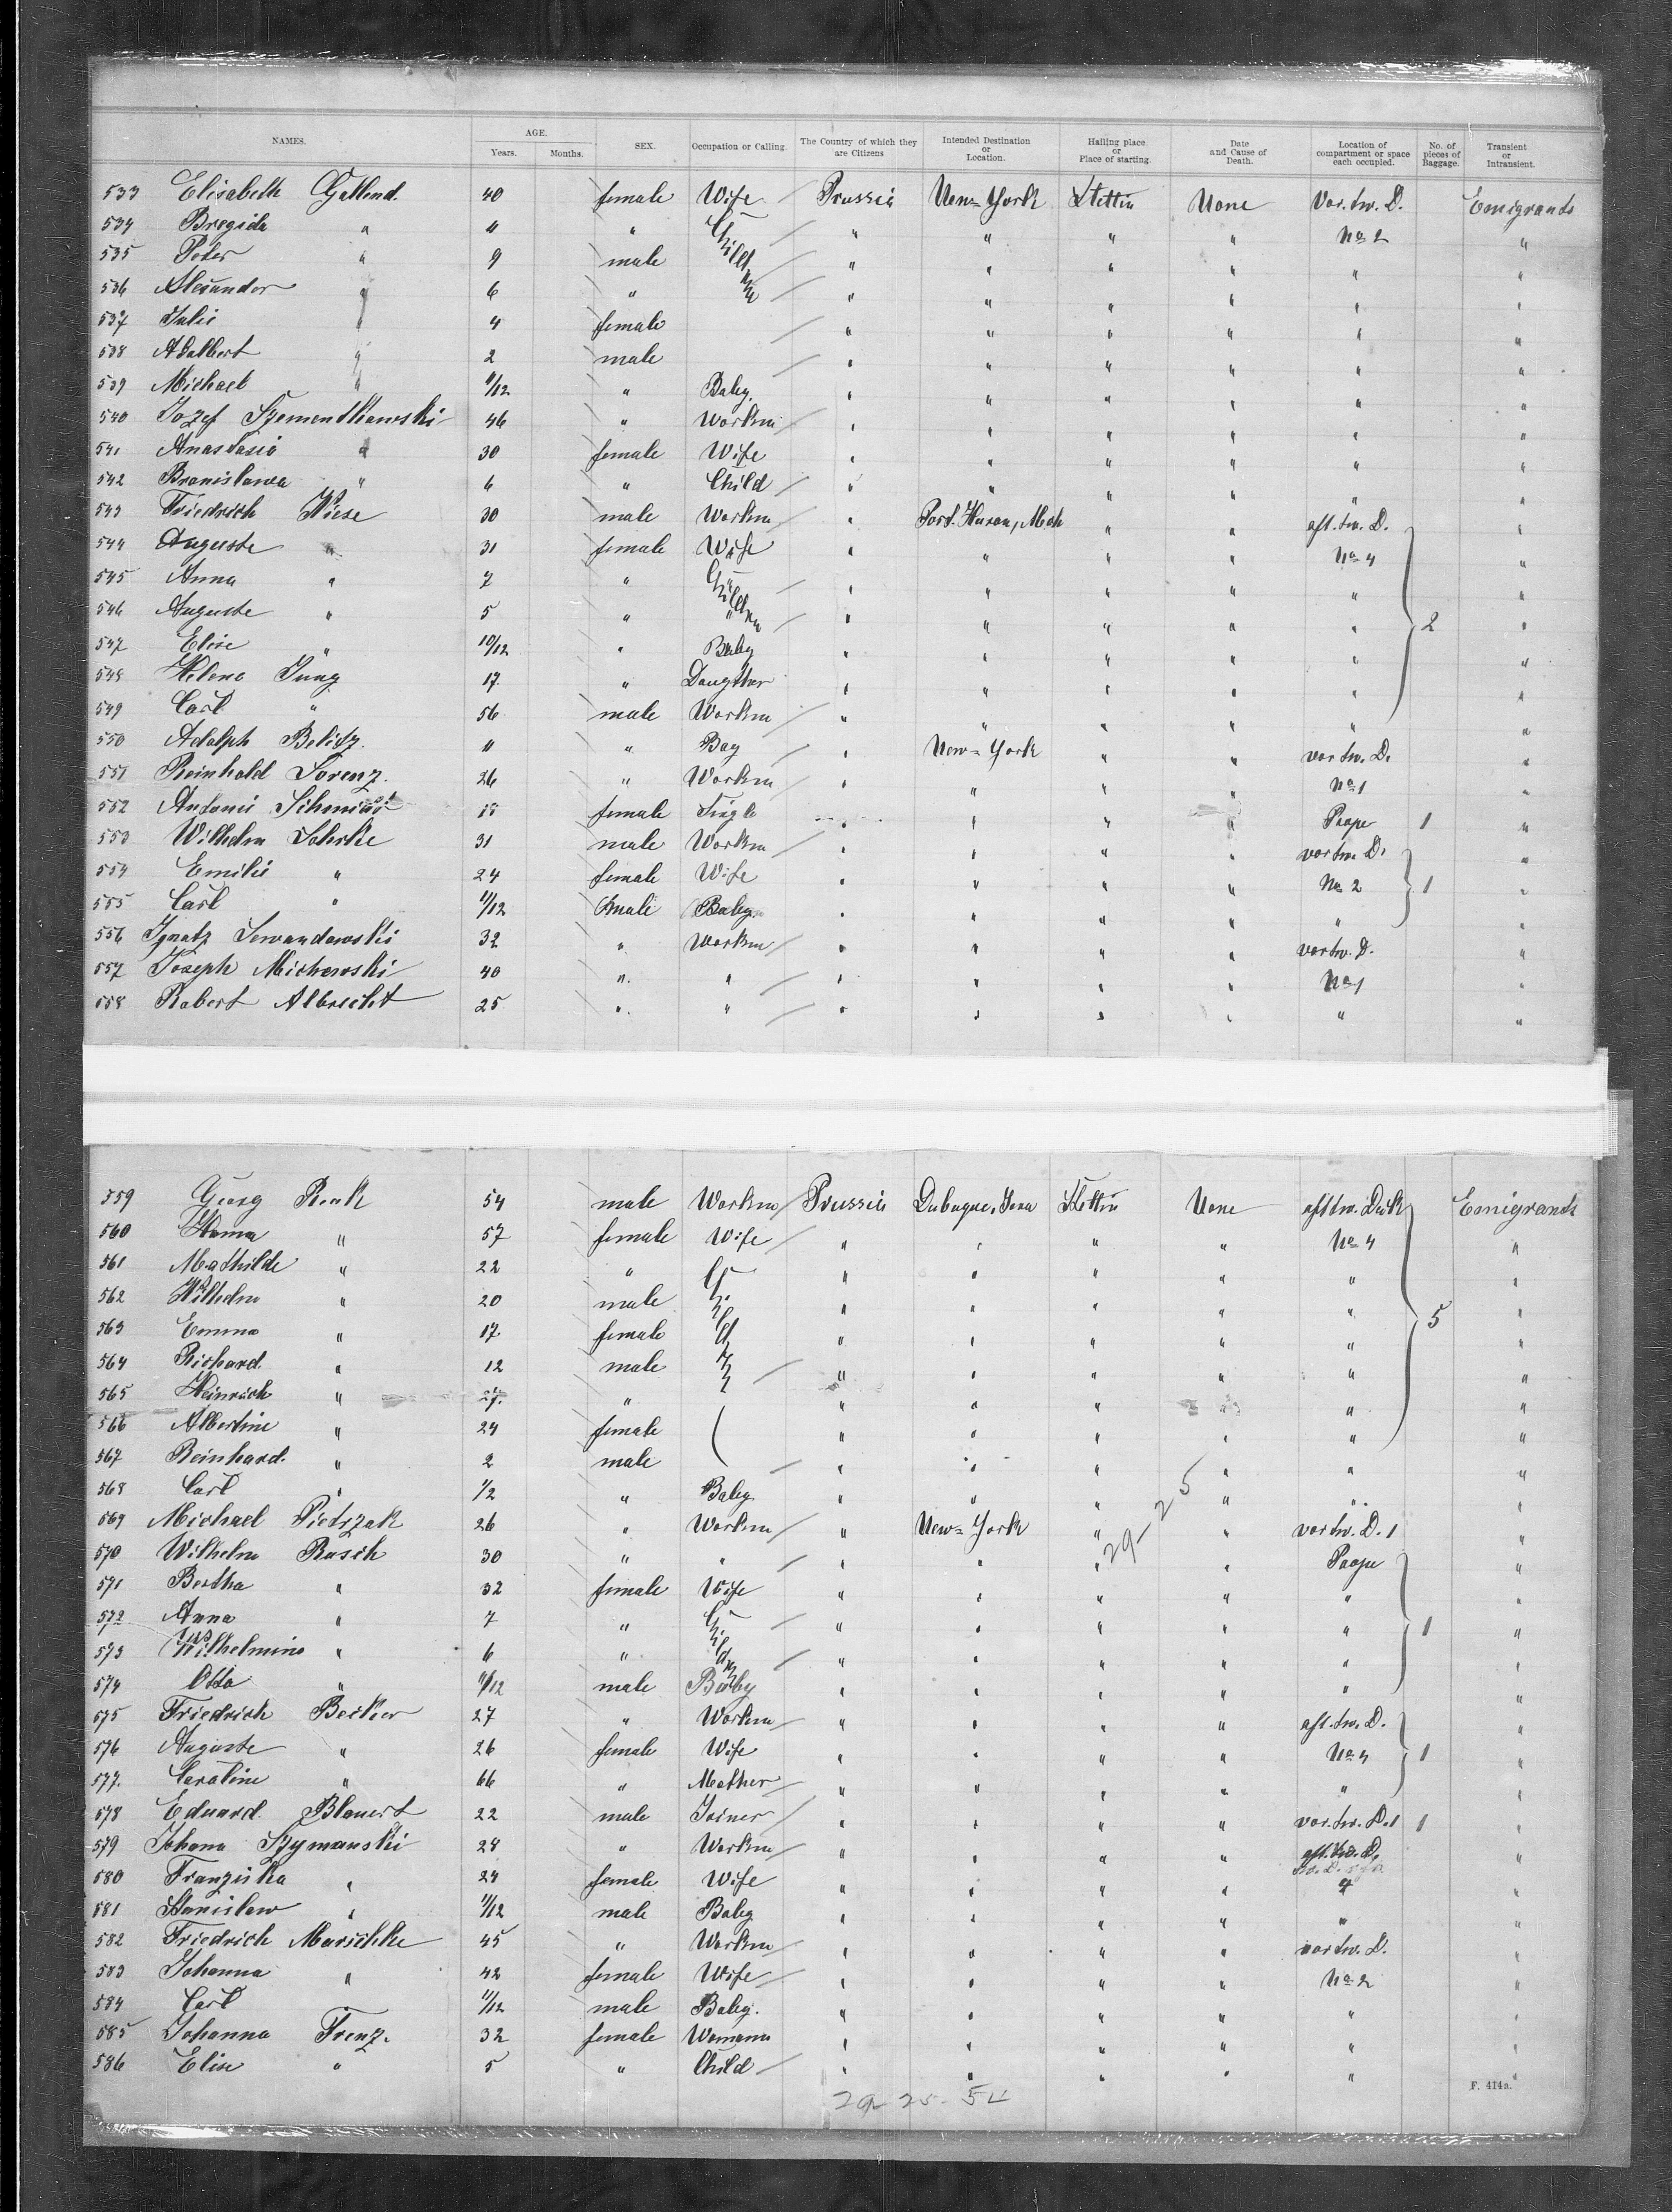 NAMES. AGE. Years. Months. SEX. Occupation or Calling. The Country of which they are Citizens Intended Destination or Location. Hailing place or Place of starting. Date and Cause of Death. Location of compartment or space each occupied. No. of pieces of Baggage. Transient or Intransient.
533 Elisabeth Gallend. 40 female Wife Prussia New=York Stettin None Vor. tw. D. Emigrants
534 Bregida " 11 " Children " " " " No 2 "
535 Peter " 9 male " " " " " "
536 Alexander " 6 " " " " " " "
537 Julie " 4 female " " " " " "
538 Adalbert " 2 male " " " " " "
539 Michael " 11/12 " Baby. " " " " " "
540 Jozef 46 " Workm " " " " " "
541 Anastasia " 30 female Wife " " " " " "
542 Branislawa " 6 " Child " " " " " "
543 Friedrich Wiese 30 male Workm " Port. Huron, Mch " " aft. tw. D. "
544 Auguste " 31 female Wife " " " " No 4 "
545 Anna " 7 " Children " " " " " "
546 Auguste " 5 " " " " " " " 2 "
547 Elise " 10/12 " Baby " " " " " "
548 Helene Jung 17 " Daugther " " " " " "
549 Carl " 56 male Workm " " " " " "
550 Adolph Belitz 11 " Boy " New=York " " vor tw. D. "
551 Reinhold Lorenz. 26 " Workm " " " " No 1 "
552 Antonie Schmidt 18 female Single " " " " Poope 1 "
553 Wilhelm 31 male Workm " " " " vor tw. D. "
554 Emilie " 24 female Wife " " " " No 2 1 "
555 Carl " 11/12 male Baby " " " " " "
556 Ignatz Lewandowski 32 " Workm " " " " vor tw. D. "
557 Joseph Michowski 40 " " " " " " No 1 "
558 Robert Albrecht 25 " " " " " " " "
559 Georg 54 male Workm Prussia Dubuque, Iowa Stettin None aft tw. Deck Emigrants
560 " 57 female Wife " " " " No 4 "
561 Mathilde " 22 " Children " " " " " "
562 Wilhelm " 20 male " " " " " "
563 Emma " 17 female " " " " " 5 "
564 Richard " 12 male " " " " " "
565 Heinrich " 27. " " " " " " "
566 Albertine " 24 female " " " " " "
567 Reinhard " 2 male " " " " " "
568 Carl " 1/2 " Baby " " " " " "
569 Michael Pietrzak 26 " Workm " New=York " " vor tw. D. 1 "
29-25
570 Wilhelm Rusch 30 " " " " " " Poope "
571 Bertha " 32 female Wife " " " " " "
572 Anna " 7 " Children " " " " " 1 "
573 Wilhelmine " 6 " " " " " " "
574 Otto " 11/12 male Baby " " " " " "
575 Friedrich Becker 27 " Workm " " " " aft. tw. D. "
576 Auguste " 26 female Wife " " " " No 4 1 "
577. Caroline " 66 " Mother " " " " " "
578 Eduard Blauert 22 male Joiner " " " " vor. tw. D. 1 1 "
579 Johann Szymanski 28 " Workm " " " " aft. tw. D. "
580 Franziska " 24 female Wife " " " " 4 "
581 Stanislaw " 11/12 male Baby " " " " " "
582 Friedrich Marschke 45 " Workm " " " " vor tw. D. "
583 Johanna " 42 female Wife " " " " No 2 "
584 Carl " 11/12 male Baby. " " " " " "
585 Johanna Frenz. 32 female Womann " " " " " "
586 Elise " 5 " Child " " " " " "
29-25-54
F. 414a.